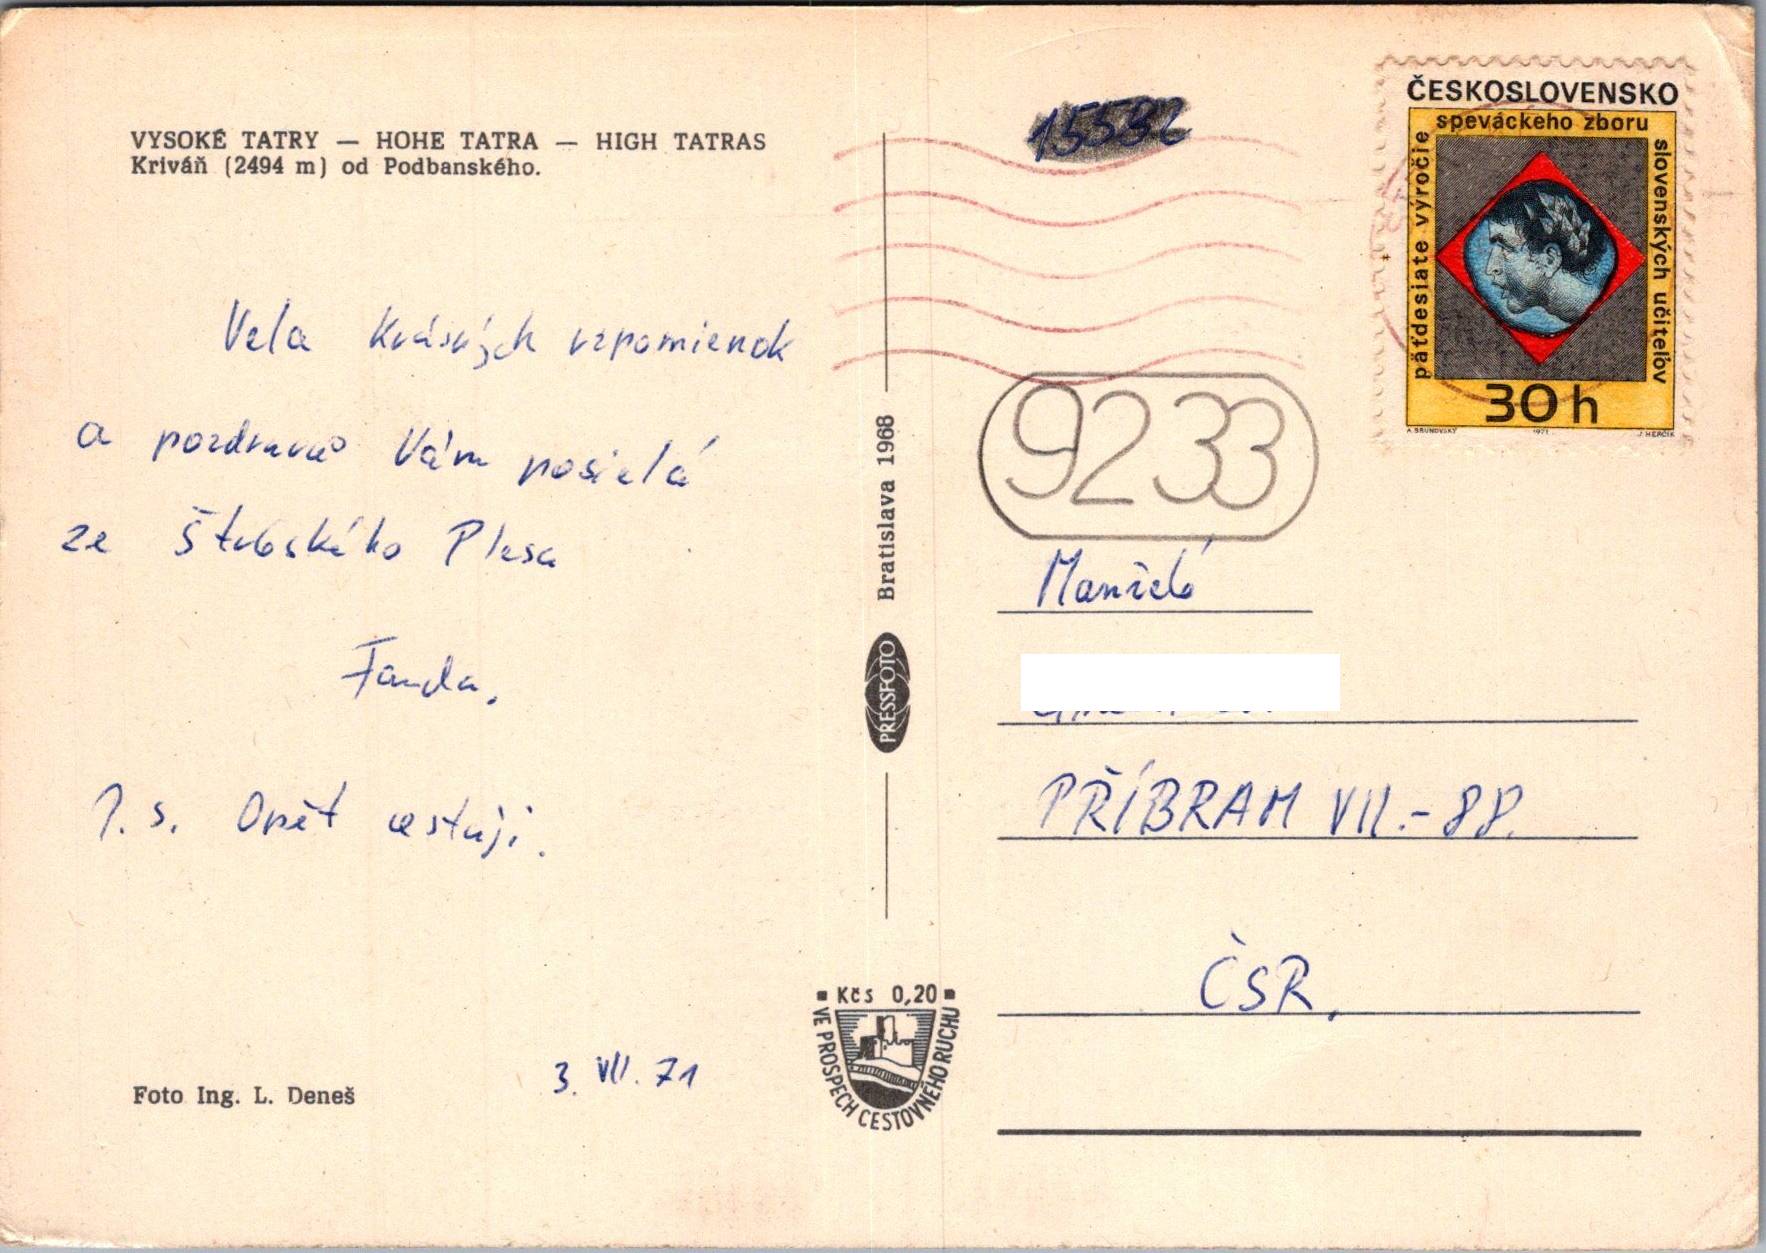 VYSOKÉ TATRY — HOHE TATRA — HIGH TATRAS
Kriváň (2494 m) od Podbanského.
Vela krásných vzpomienok
a pozdravů Vám posielá
ze Štrbského Plesa
Fanda.
P.s. Opět cestuji.
3. VII. 71
Foto Ing. L. Deneš
Bratislava 1968
PRESSFOTO
Kčs 0,20
VE PROSPECH CESTOVNÉHO RUCHU
15592
ČESKOSLOVENSKO
päťdesiate výročie
speváckeho zboru
slovenských učiteľov
30 h
A. BRUNOVSKÝ 1971 J. HERČÍK
9233
Manželé
PŘÍBRAM VII.-88.
ČSR.